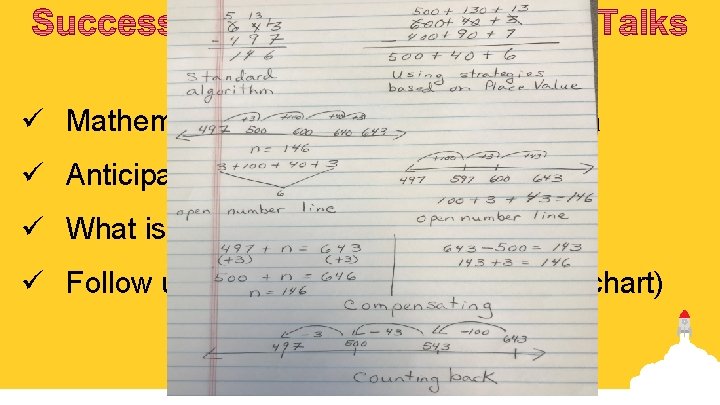 Success Talks
✓ Mathem
✓ Anticipa
✓ What is
✓ Follow u chart)
5 13
6 4 3
- 4 9 7
1 4 6
Standard algorithm
500 + 130 + 13
600 + 40 + 3
- 400 + 90 + 7
500 + 40 + 6
Using strategies
based on Place Value
+3 +100 +40 +3
497 500 600 640 643
n = 146
3 + 100 + 40 + 3
6
open number line
+100 +3 +43
497 597 600 643
100 + 3 + 43 = 146
open number line
497 + n = 643
(+3) (+3)
500 + n = 646
n = 146
643 - 500 = 143
143 + 3 = 146
Compensating
-3 -43 -100
497 500 543 643
Counting back